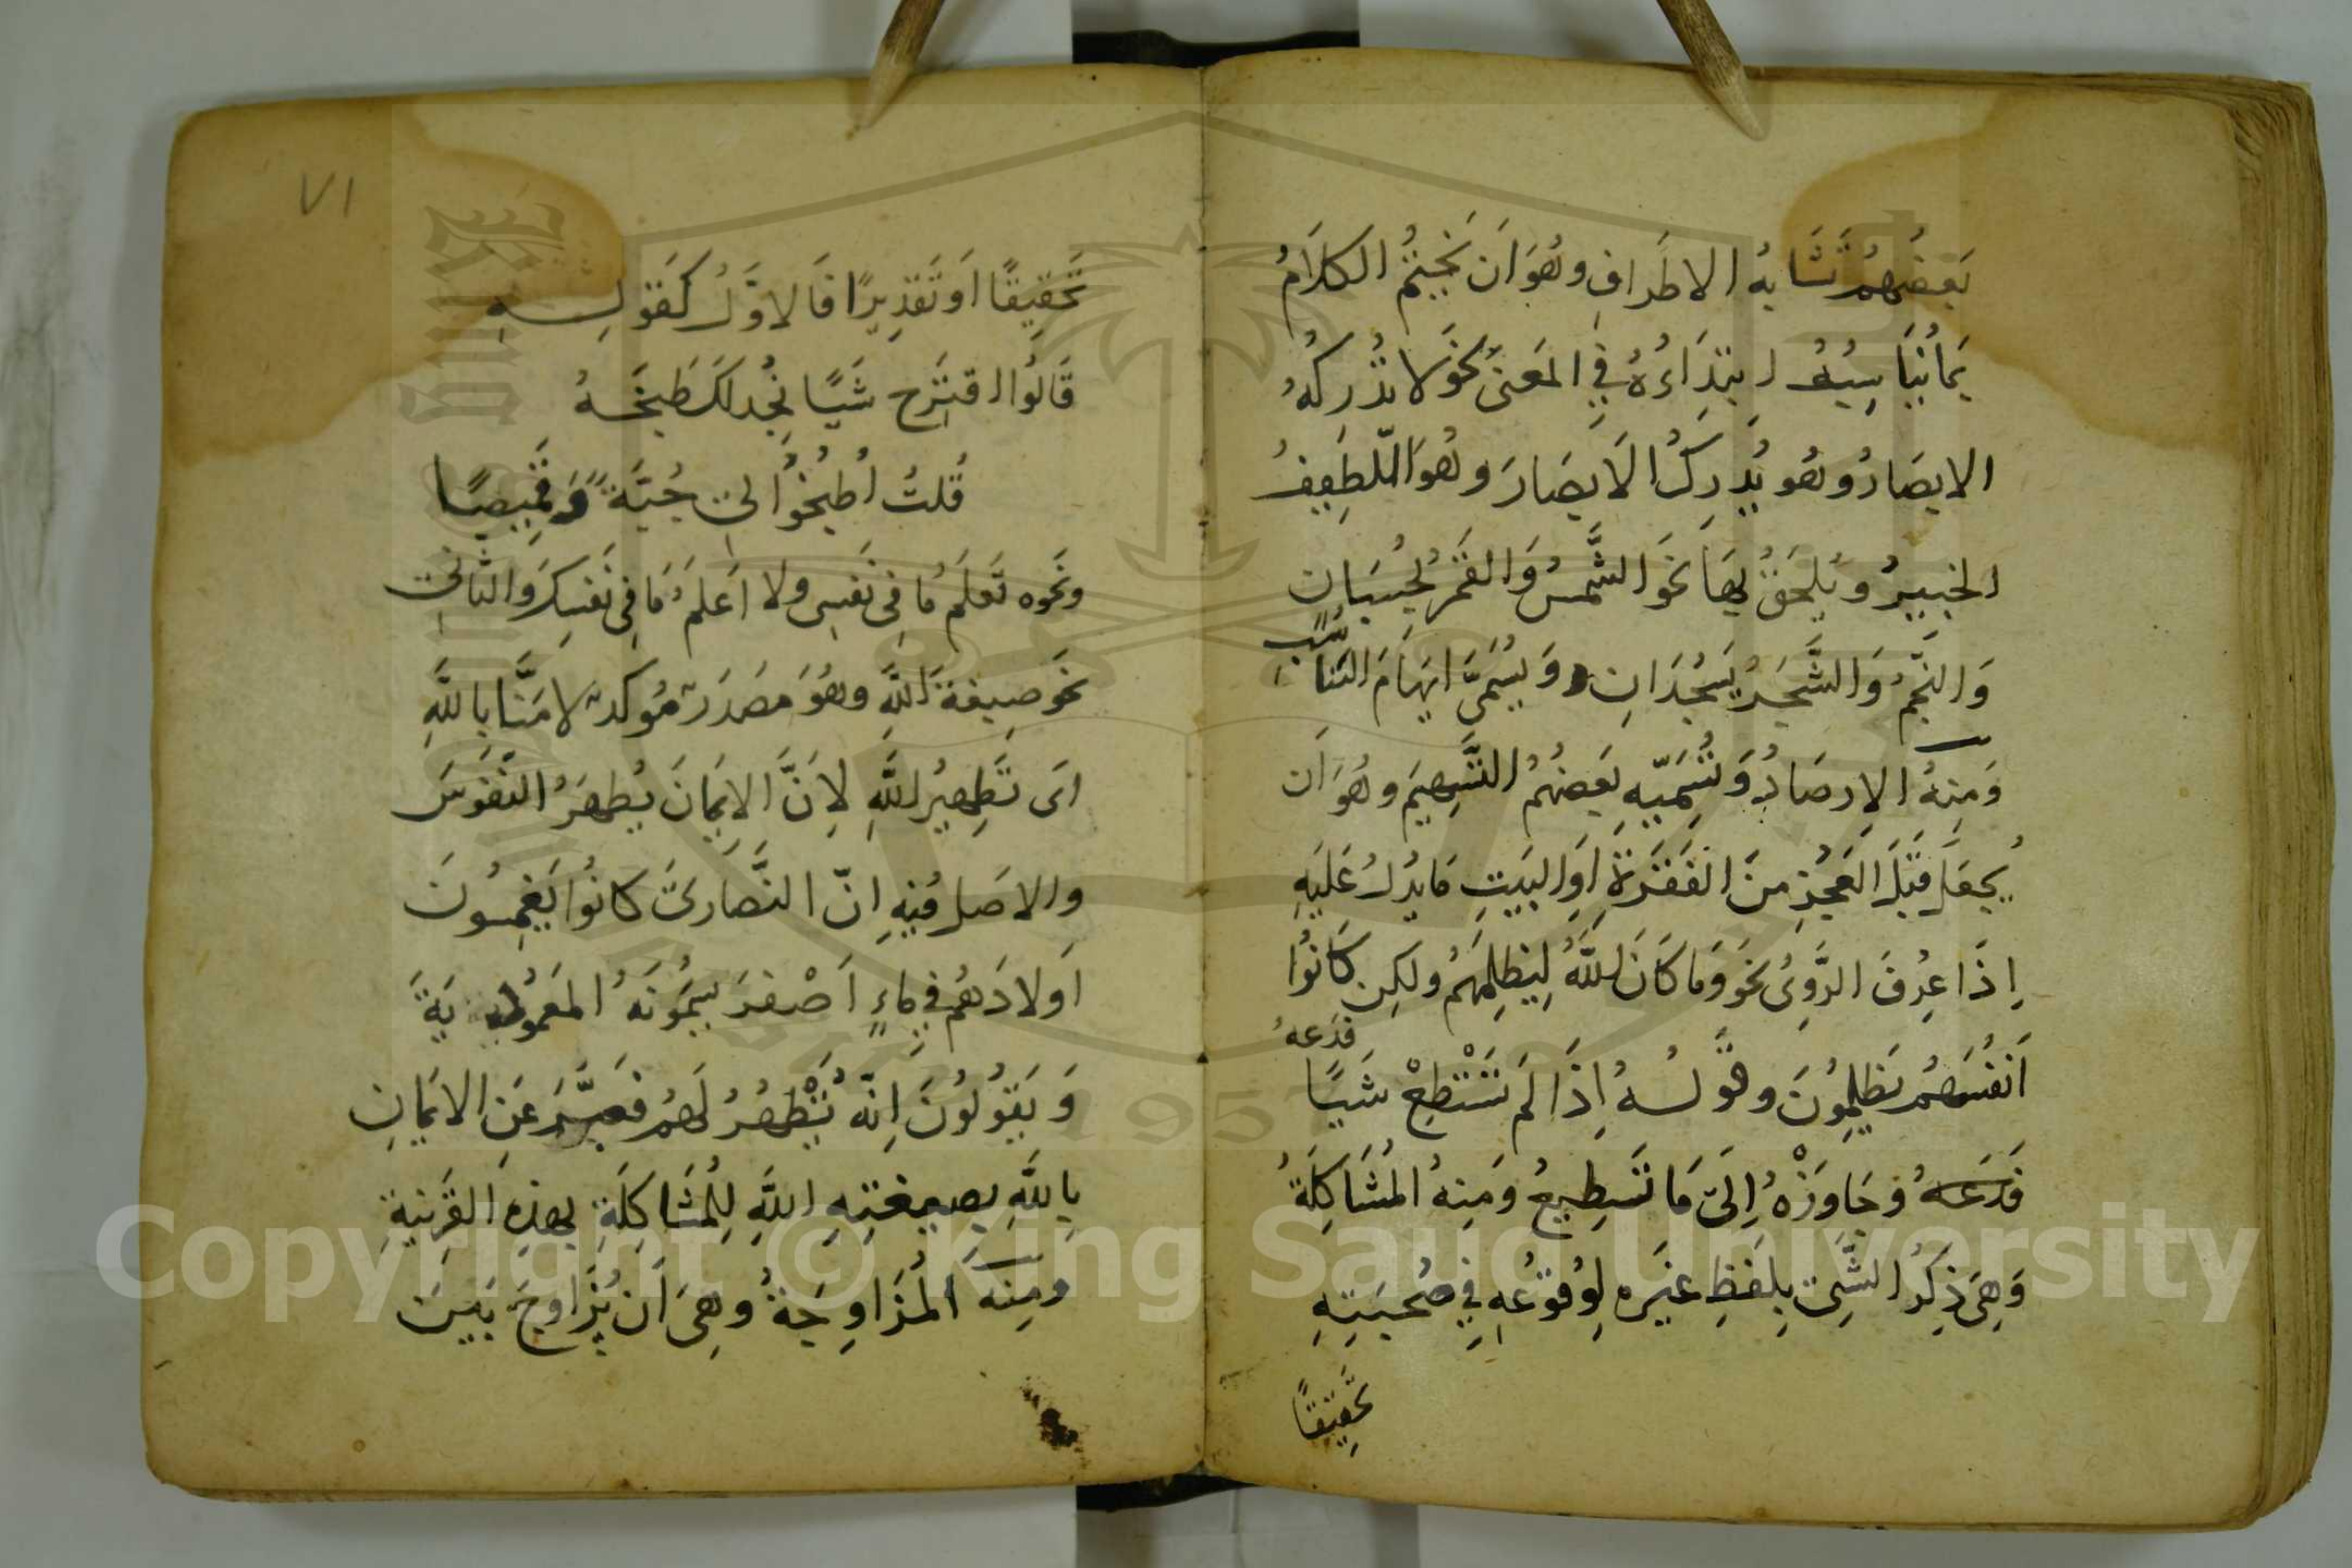 بَعْضُهُمْ تَشَابُهَ الاطْرَافِ وهُوَ اَن يُخْتَمَ الكَلَامُ
بِمَا يُنَاسِبُ ابتِدَاءُهُ فِي المَعنىَ نَحْوَ لا تُدْرِكُهُ
الابصَارُ وهُو يُدرِكُ الاَبصَارَ وهُوَ اللّطِيفُ
الخبيرُ ويُلحَقُ بِهَا نَحَو الشَّمسُ وَالقَمَرُ بِحُسْبَانٍ
وَالنَّجْمُ وَالشَّجَرُ يَسْجُدَانِ وَيُسَمَّى ايهَامَ التَنَاسُب
وَمِنهُ الاِرصَادُ وَيُسَمّيِه بَعضُهُمُ التَّسهِيمَ وهُوَ اَن
يُجعَلَ قَبْلَ العَجُزِ مِنَ الفَقَرَةِ اَوِ البَيتِ مَا يَدُلُ عَلَيهِ
اِذَا عرِفَ الرَّوِىُ نحَو وَمَا كَانَ اللَّهُ لِيَظلِمَهُم ولكِن كَانُوا
اَنفُسَهُم يَظلِمُونَ وقَولُهُ اِذَا لَم تَسْتَطِعْ شَيئًا فَدَعهُ
فَدَعهُ وجَاوِزْهُ اِلىَ مَا تَستَطِيعُ وَمِنهُ المُشَاكلَةُ
وَهِىَ ذِكرُ الشَّىءِ بِلَفظِ غيَرهِ لِوُقوُعِهِ فِي صُحبَتِهِ
تَحقِيقًا
٧١
تَحقِيقًا اَو تَقدِيرًا فَالاوَّلُ كَقَولِهِ
قَالُوا اقتَرِح شَيئًا نُجِد لَكَ طَبخَهُ
قُلتُ اُطبُخُوا لِى جُبَّةً وَقَمِيصًا
ونحَوه تَعلَمُ مَا فِى نَفسِى ولا اَعلَمُ مَا فِى نَفسِكَ وَالثَانِى
نحَو صِبغةَ اللَّهِ وهُوَ مَصدَرٌ مُوكدٌ لامَنَّا بِاللَّهِ
اىَ تَطهِيرُ اللَّهِ لاِنَّ الاِيمَانَ يُطهِرُ النُفُوسَ
والاصَل فيِهِ انّ النَّصَارىَ كانُوا يَغمِسُونَ
اَولادَهُم فِي مَاءٍ اَصْفرَ يُسَمُونَهُ المَعمُودِيَةَ
وَيَقُولُونَ اِنّهُ تَطْهِيرُ لَهُم فعَبَّرَ عَنِ الايمَانِ
بِاللَّهِ بصبغَتِهِ اللَّهِ لِلمُشَاكلَةِ بهذِهِ القَرِينةِ
ومِنهُ المُزَاوجَةُ وهِىَ اَن يُزَاوجَ بَينَ
Copyright © King Saud University
1957